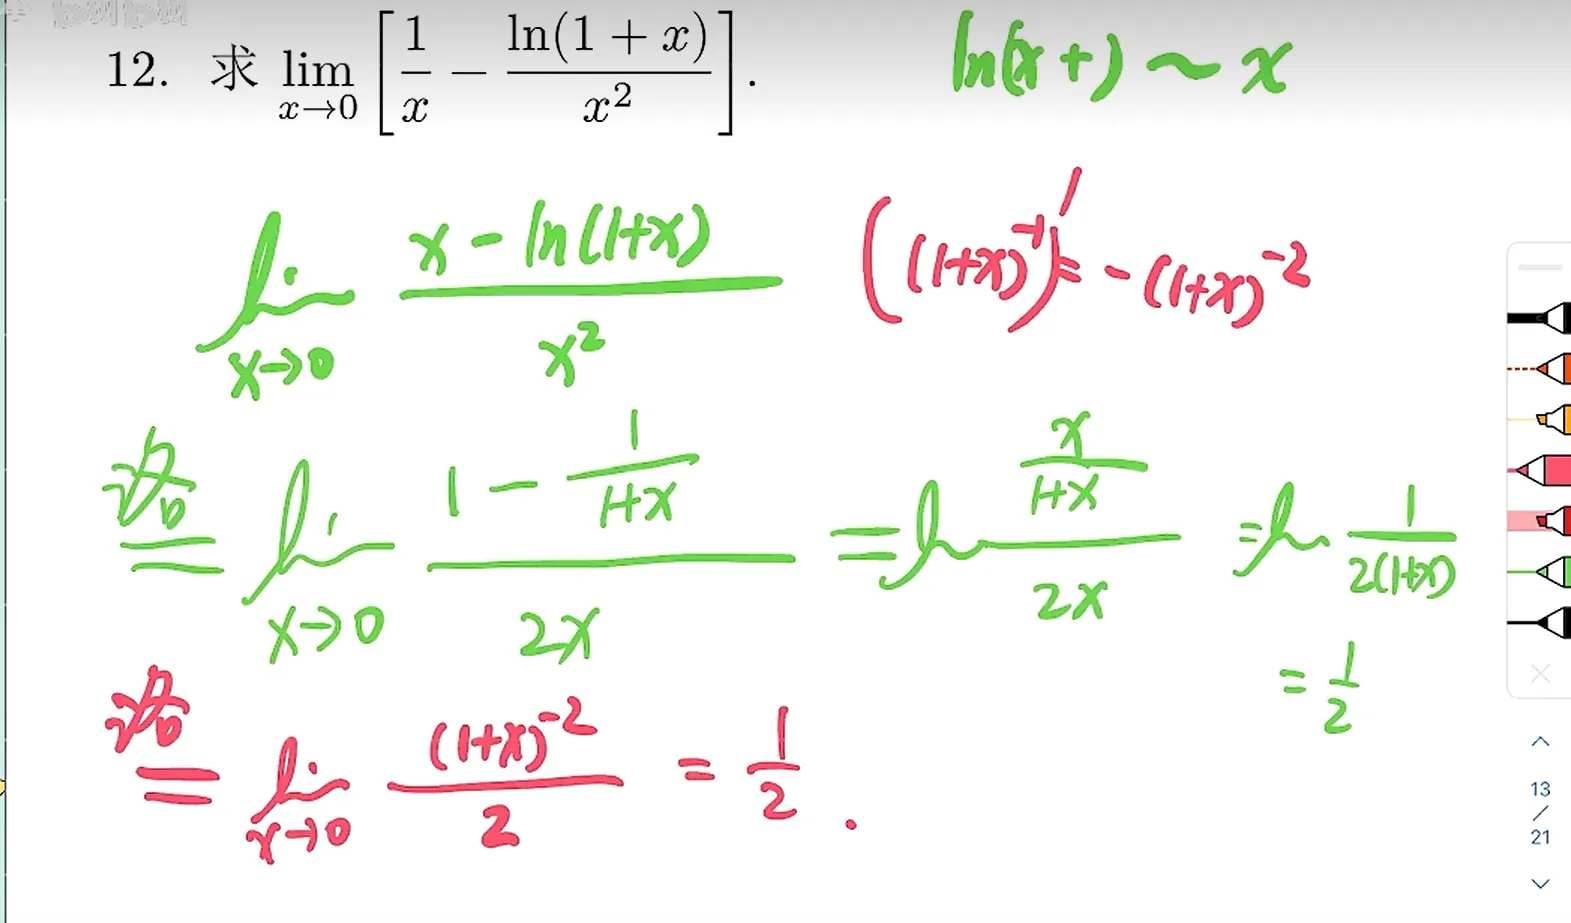 12. 求 lim x→0 [1/x − ln(1 + x)/x²].
ln(x+) ~ x
lim x→0 (x − ln(1+x))/x²
((1+x)⁻¹)′ = −(1+x)⁻²
洛 = lim x→0 (1 − 1/(1+x))/2x = l (x/(1+x))/2x = l 1/2(1+x)
= 1/2
洛 = lim x→0 (1+x)⁻²/2 = 1/2.
13
/
21